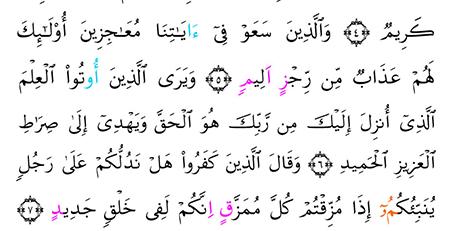 كَرِيمٌ ﴿٤﴾ وَالَّذِينَ سَعَوْ فِىٓ ءَايَٰتِنَا مُعَٰجِزِينَ أُوْلَٰٓئِكَ
لَهُمْ عَذَابٌ مِّن رِّجْزٍ اَلِيمٌ ﴿٥﴾ وَيَرَى الَّذِينَ أُوتُواْ الْعِلْمَ
الَّذِىٓ أُنزِلَ إِلَيْكَ مِن رَّبِّكَ هُوَ الْحَقَّ وَيَهْدِىٓ إِلَىٰ صِرَٰطِ
الْعَزِيزِ الْحَمِيدِ ﴿٦﴾ وَقَالَ الَّذِينَ كَفَرُواْ هَلْ نَدُلُّكُمْ عَلَىٰ رَجُلٍ
يُنَبِّئُكُمُۥٓ إِذَا مُزِّقْتُمْ كُلَّ مُمَزَّقٍ اِنَّكُمْ لَفِى خَلْقٍ جَدِيدٍ ﴿٧﴾